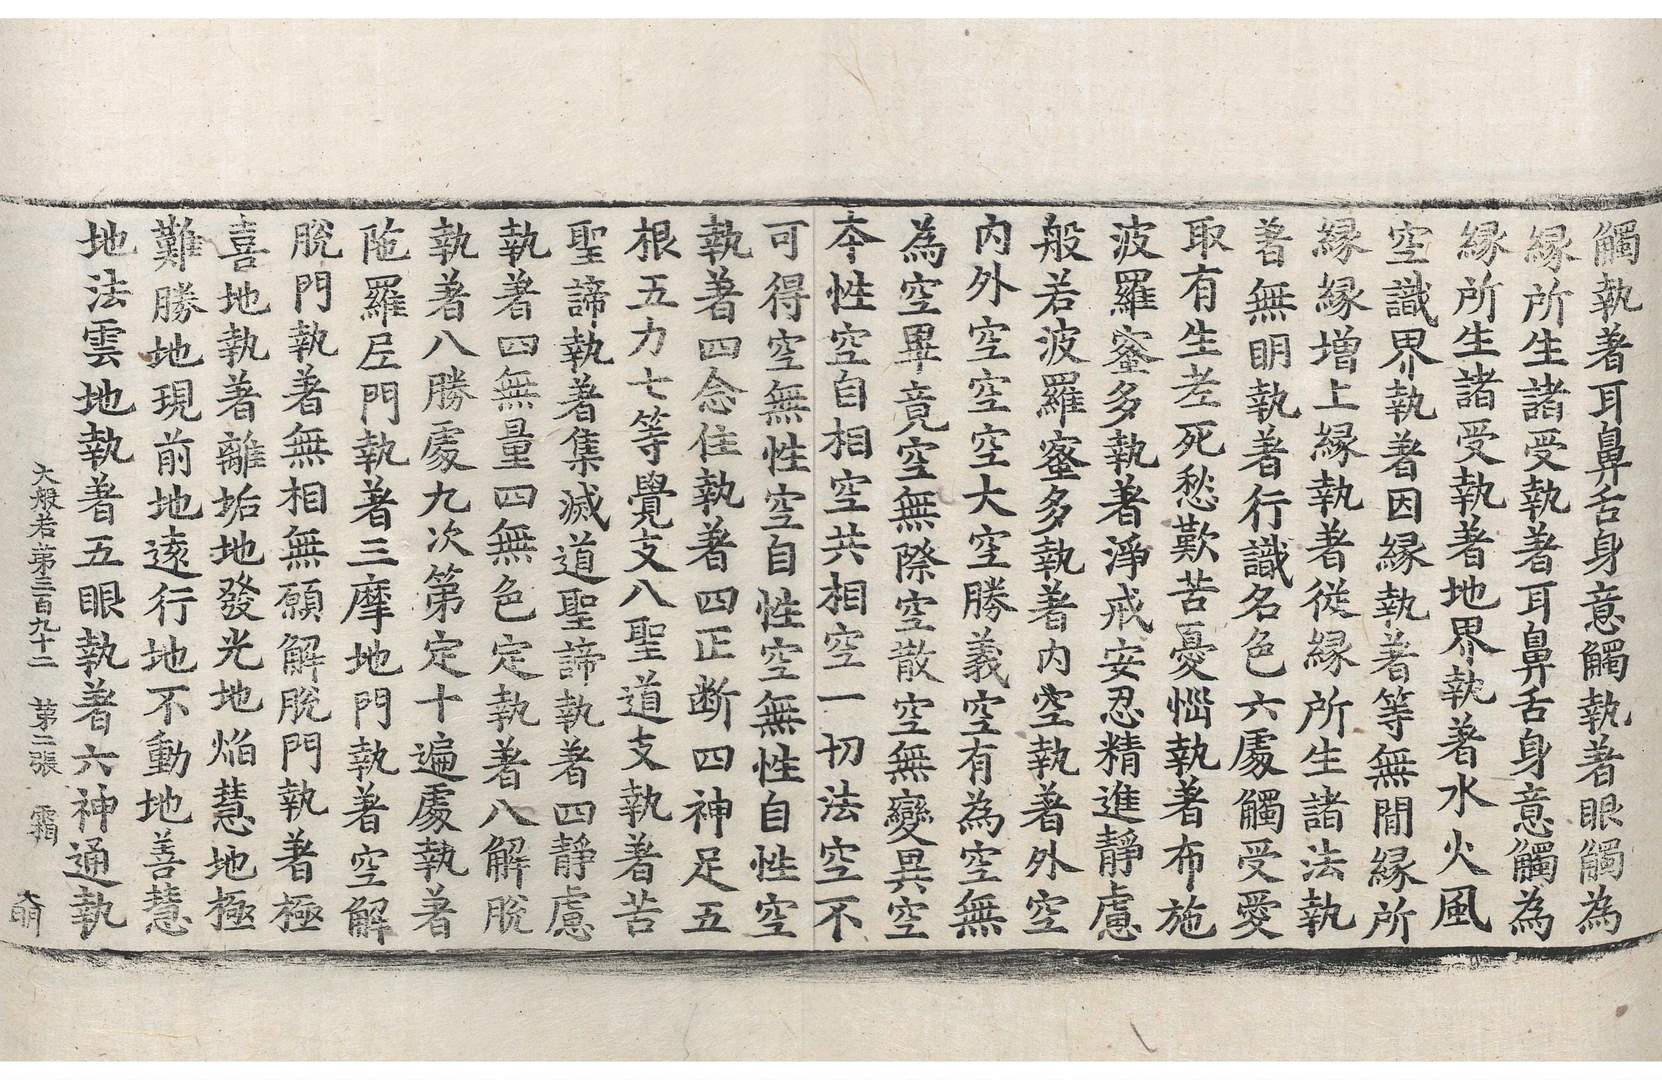 觸執著耳鼻舌身意觸執著眼觸為
縁所生諸受執著耳鼻舌身意觸為
縁所生諸受執著地界執著水火風
空識界執著因縁執著等無間縁所
縁縁增上縁執著從縁所生諸法執
著無明執著行識名色六處觸受愛
取有生老死愁歎苦憂惱執著布施
波羅蜜多執著淨戒安忍精進靜慮
般若波羅蜜多執著内空執著外空
内外空空空大空勝義空有為空無
為空畢竟空無際空散空無變異空
本性空自相空共相空一切法空不
可得空無性空自性空無性自性空
執著四念住執著四正断四神足五
根五力七等覺支八聖道支執著苦
聖諦執著集滅道聖諦執著四靜慮
執著四無量四無色定執著八解脫
執著八勝處九次第定十遍處執著
陁羅尼門執著三摩地門執著空解
脫門執著無相無願解脫門執著極
喜地執著離垢地發光地焰慧地極
難勝地現前地遠行地不動地善慧
地法雲地執著五眼執著六神通執
大般若第三百九十二 第二張 霜 大明